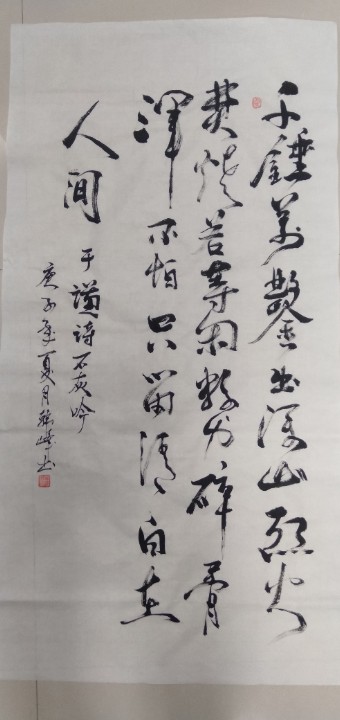 千錘萬鑿出深山烈火
焚燒若等閑粉身碎骨
渾不怕只留清白在
人间
于謙诗石灰吟
庚子年夏月峰书